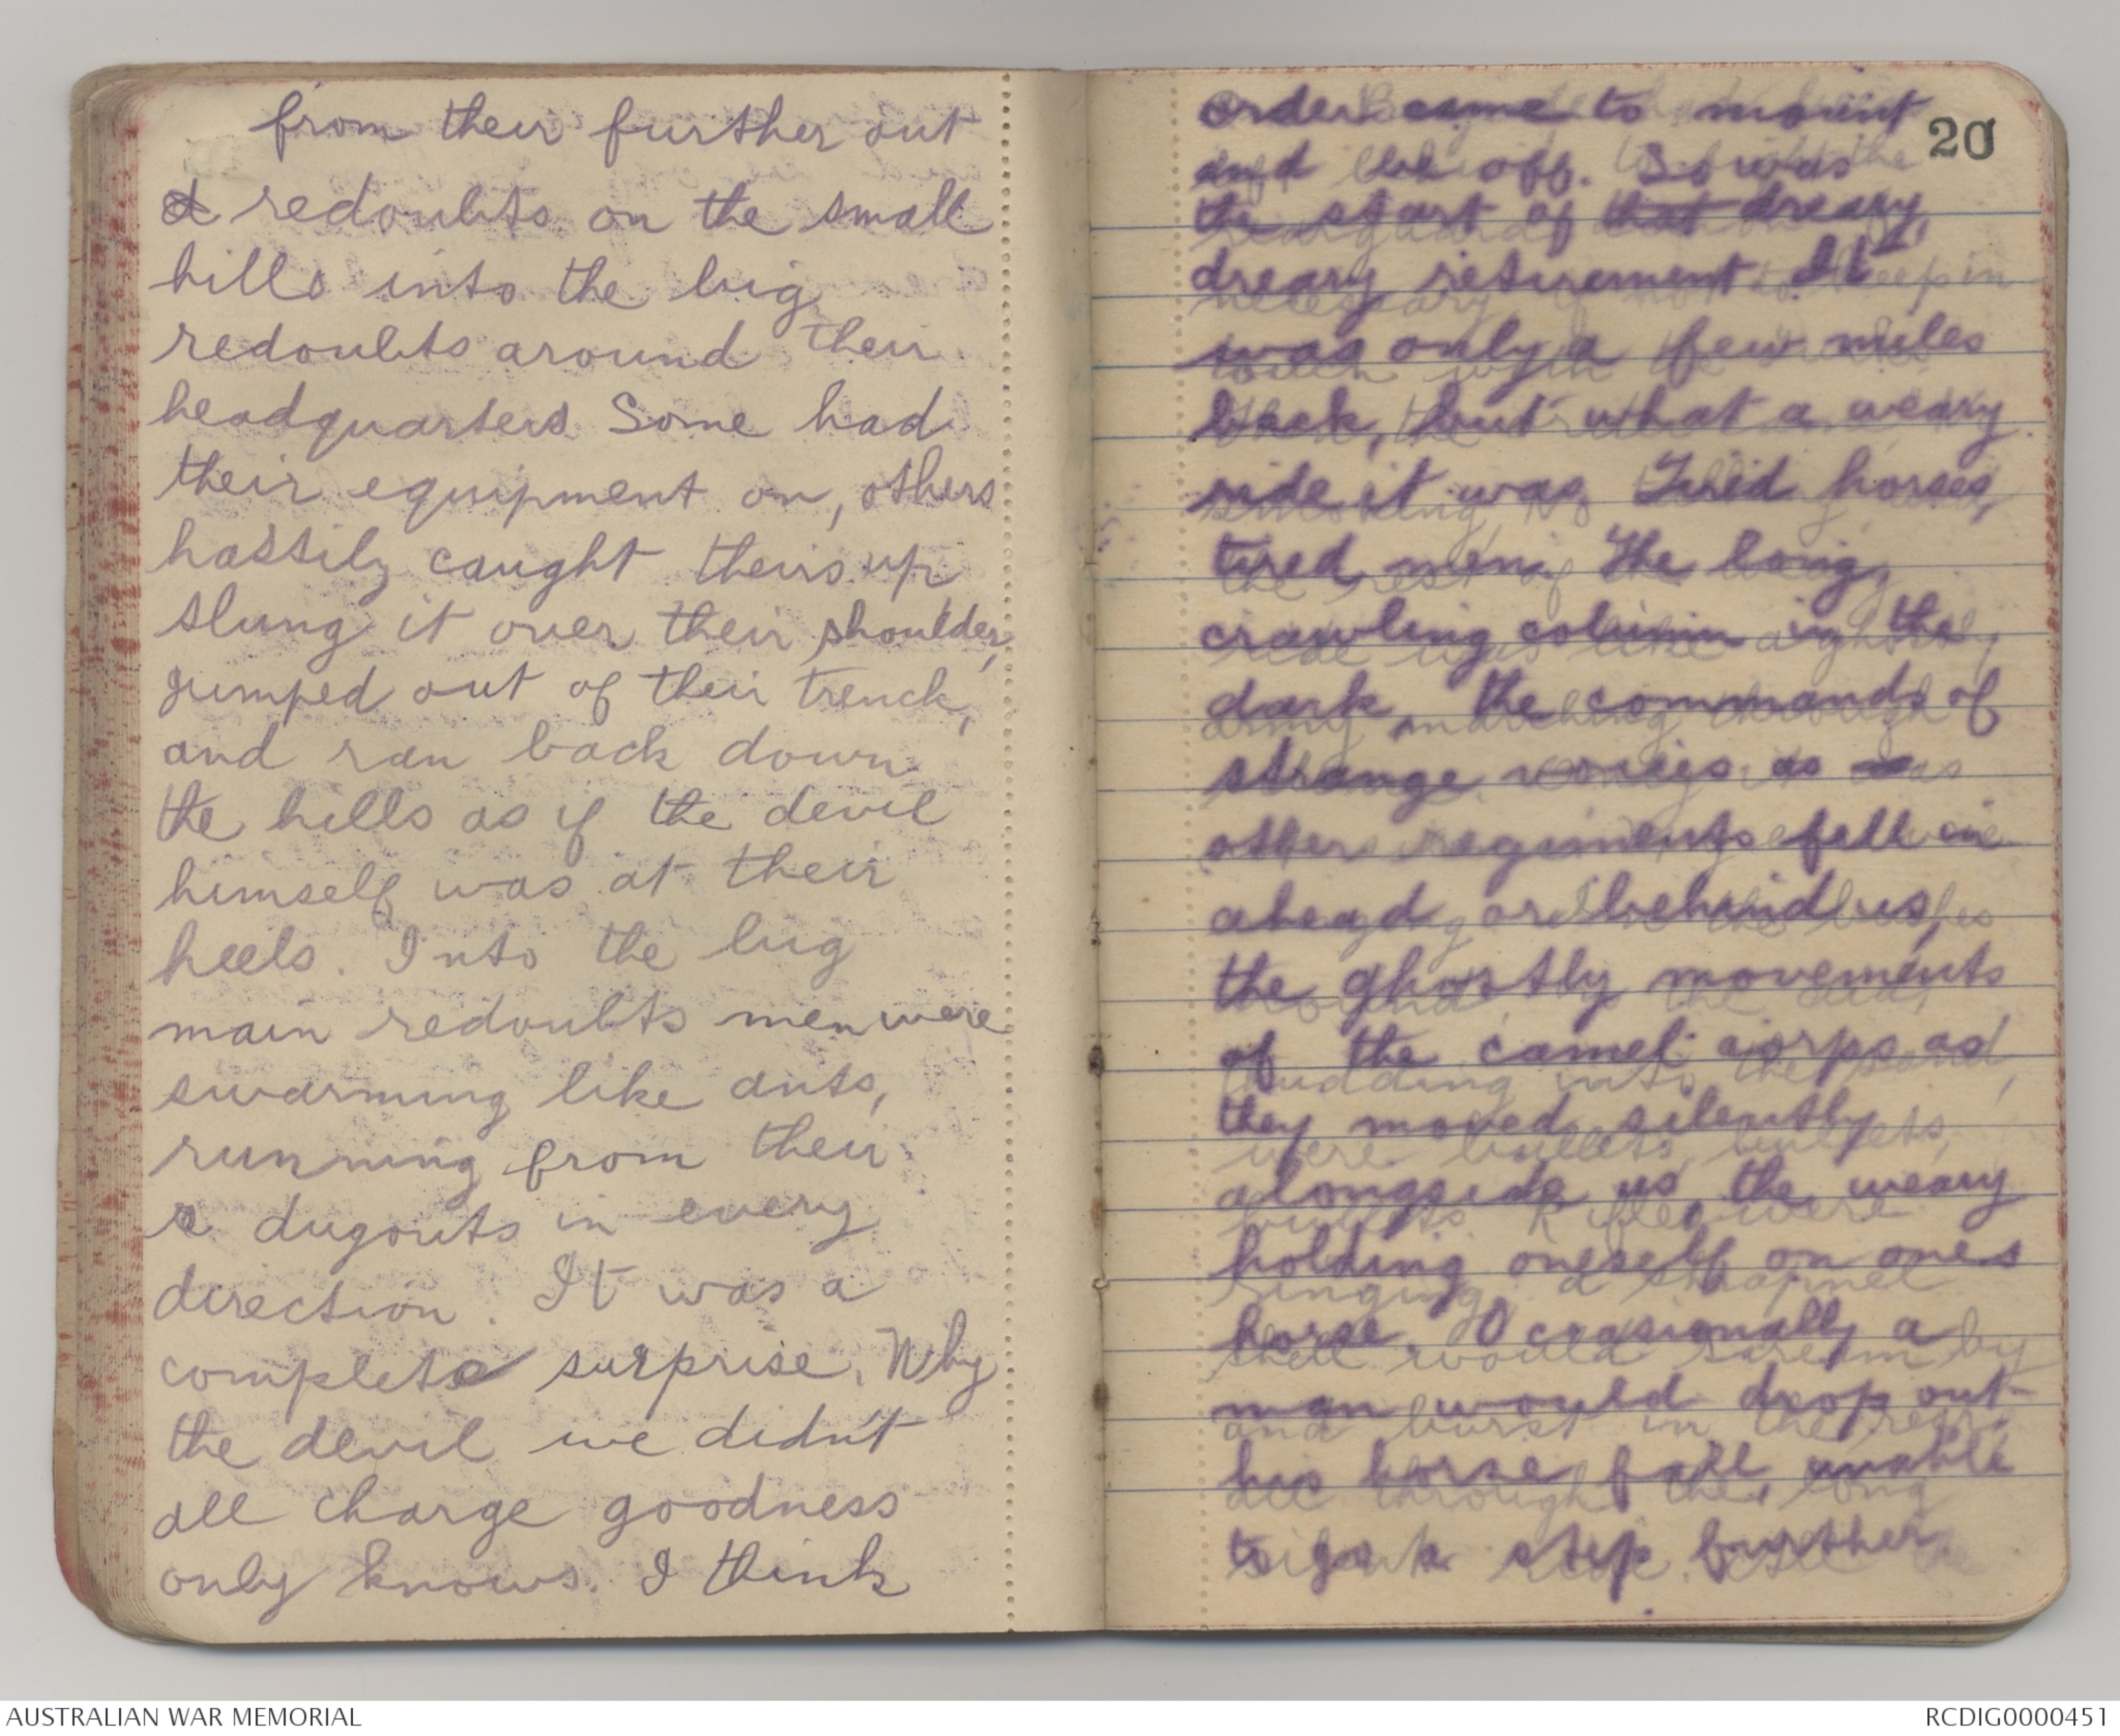 from their further out
redoubts on the small
hills into the big
redoubts around their
headquarters. Some had
their equipment on, others
hastily caught theirs up,
slung it over their shoulder,
jumped out of their trench,
and ran back down
the hills as if the devil
himself was at their
heels. Into the big
main redoubts men were
swarming like ants,
running from their
dugouts in every
direction. It was a
complete surprise. Why
the devil we didn't
all charge goodness
only knows. I think
20
order came to mount
and be off. So was
the start of that dreary,
dreary retirement. It
was only a few miles
back, but what a weary
ride it was. Tired horses,
tired men. The long,
crawling column in the
dark, the commands of
strange voices as
other regiments fell in
ahead or behind us,
the ghostly movements
of the camel corps as
they moved silently
alongside us, the weary
holding oneself on ones
horse. Occasionally a
man would drop out
his horse fall, unable
to go a step further.
AUSTRALIAN WAR MEMORIAL
RCDIG0000451